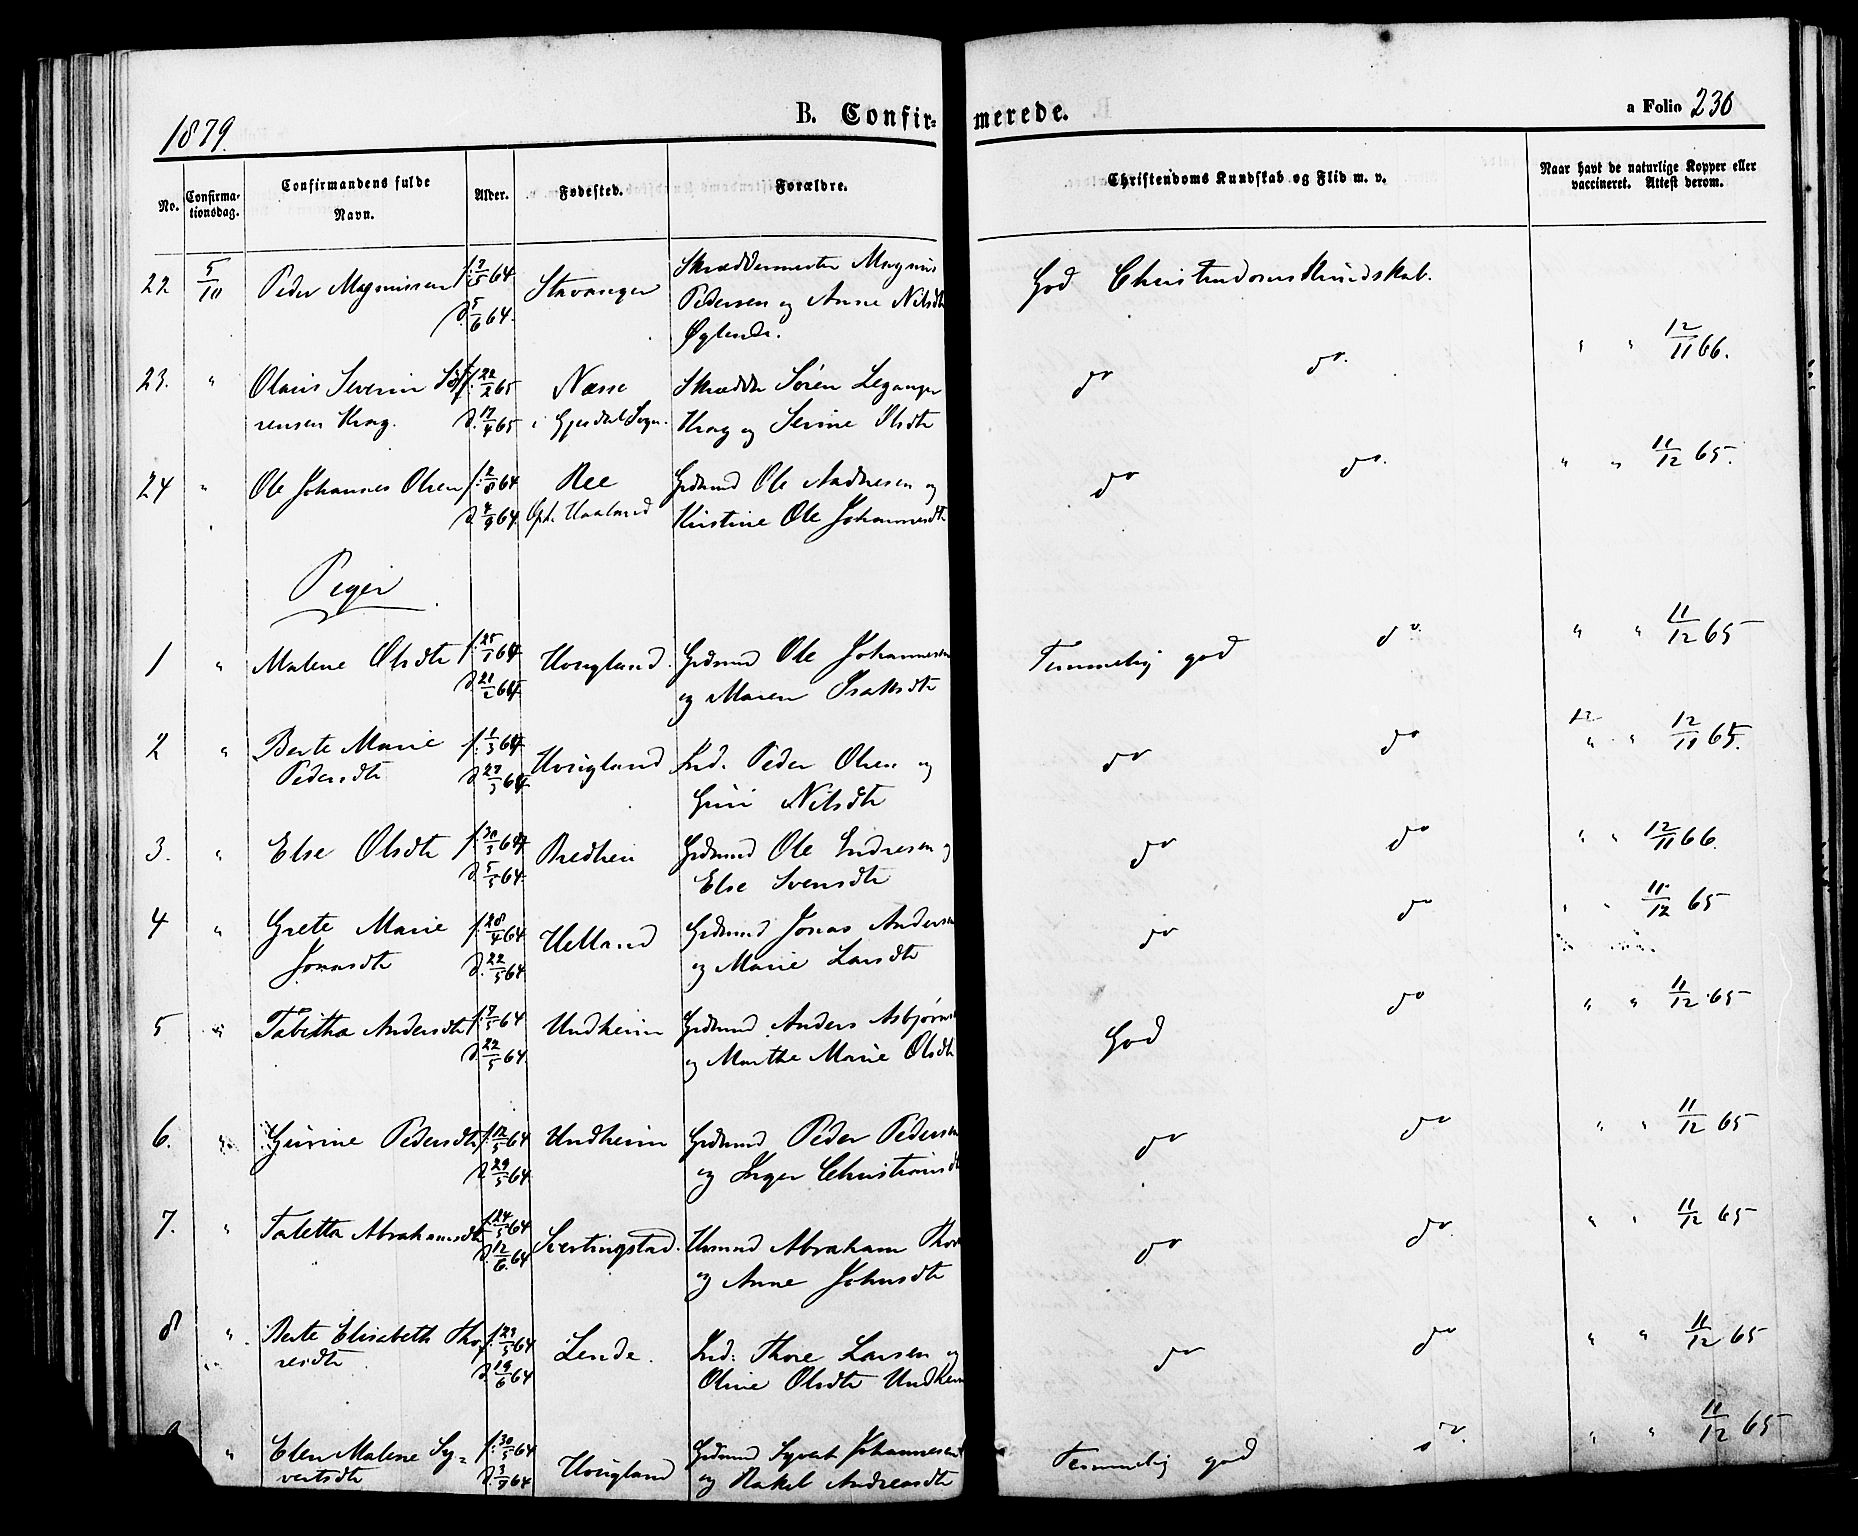 1879.
B. Confirmerede.
a Folio 230
No.
Confirmationsdag.
Confirmandens fulde Navn.
Alder.
Fødested.
Forældre.
Christendoms Kundskab og Flid m. v.
Naar havt de naturlige Kopper eller vaccineret. Attest derom.
22 5/10 Peder Magnussen f. 7/5 64 Stavanger Skræddermester Magnus God Christendomskundskab.
d. 5/6 64. Pedersen og Anne Nilsdtr
" " 12/11 66.
23. " Olaus Severin Sø- f. 22/2 65 Næsse Skrædder Søren Leganger do do.
rensen Krag. d. 17/4 65 i Gjesdal Sogn. Krag og Serine Olsdtr
" " 11/12 65.
24 " Ole Johannes Olsen f. 2/8 64 Ree Grdmnd Ole Andresen og do do.
d. 4/9 64 Haaland Kirstine Ole Johannesdtr
Piger
1 " Malene Olsdtr f. 25/1 64 Houglànd. Grdmnd Ole Johannesen Temmelig god do " " 11/12 65
d. 21/2 64 og Maren Isaksdtr
2 " Berte Marie f. 1/3 64 Hougland Ind. Peder Olsen og do do 12 " " 12/11 65.
Pedersdtr d. 27/3 64 Guri Nilsdtr
3. " Else Olsdtr f. 30/3 64 Bredhei Grdmnd Ole Endresen og do do " " 12/11 66.
d. 5/5 64. Else Svensdtr
4 " Grete Marie f. 28/4 64 Helland Grdmnd Jonas Andersen do do " " 11/12 65
Jonasdtr d. 22/5 64 og Marie Larsdtr
5 " Tabitha Andersdtr f. 7/5 64 Undheim Grdmnd Anders Asbjørns God do " " 11/12 65
d. 22/5 64 og Marthe Marie Olsdtr
6. " Gurine Pedersdtr f. 12/5 64 Undheim Grdmnd Peder Pedersen do do " " 11/12 65
d. 29/5 64 og Inger Christiansd
7. " Taletta Abrahamsdtr f. 24/5 64 Svertingstad. Husmnd Abraham Thor do do. " " 11/12 65
d. 12/6 64 og Anne Johnsdtr
8 " Berte Elisabeth Tho- f. 23/5 64 Lende. Ind: Thore Larsen og do do " " 11/12 65
resdtr d. 19/6 64 Oline Olsdtr Undheim
" Elen Malene Sy- f. 30/5 64 Hougland Grdmnd Syvert Johannesen Temmelig god do. " " 11/12 65
vertsdtr d. 3/7 64 og Rakel Andreasdtr